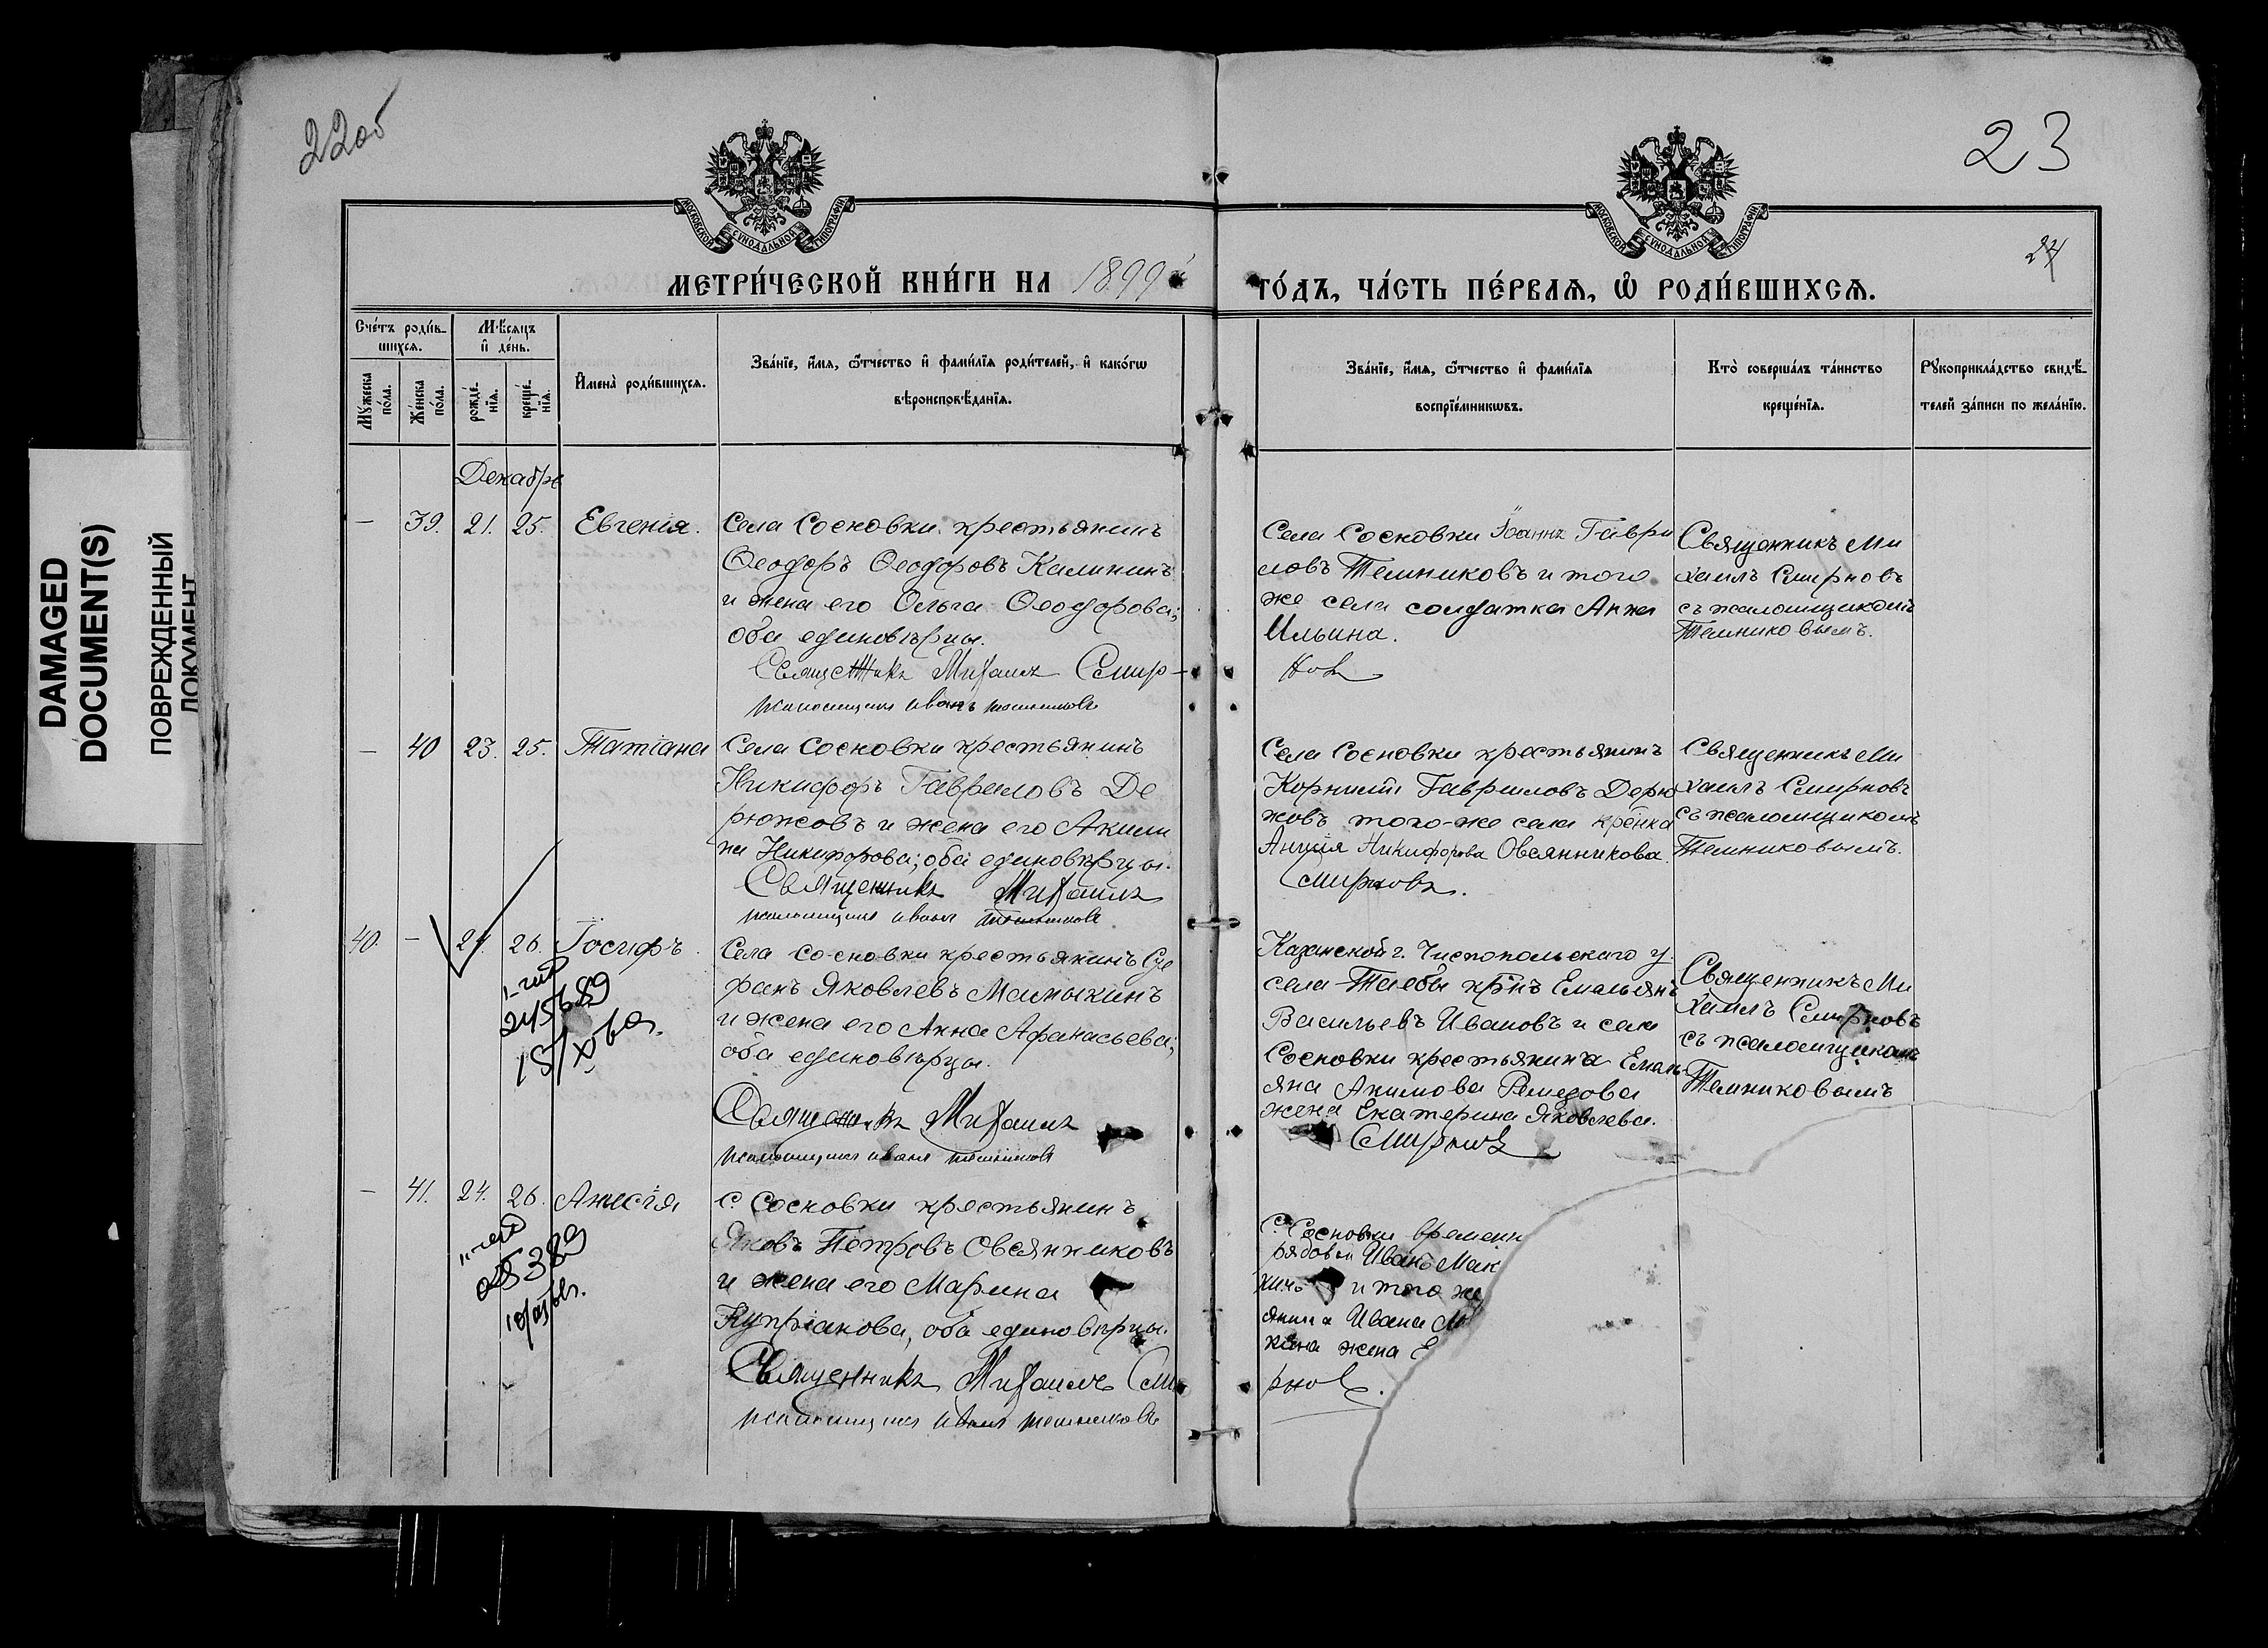 22об
23
24
МОСКОВСКОЙ СѴНОДАЛЬНОЙ ТИПОГРАФІИ
МОСКОВСКОЙ СѴНОДАЛЬНОЙ ТИПОГРАФІИ
МЕТРИ́ЧЕСКОЙ КНИ́ГИ НА 1899й
ГО́ДЪ, ЧА́СТЬ ПЕ́РВАѦ, Ѽ РОДИ́ВШИХСѦ.
Сче́тъ роди́вшихсѧ.
Мꙋ́жеска по́ла.
Же́нска по́ла.
М҃ѣсѧцъ и҆ де́нь.
рожде́нїѧ.
креще́нїѧ.
И҆мена̀ роди́вшихсѧ.
Зва́нїе, и҆́мѧ, ѻ҆́тчество и҆ фами́лїѧ роди́телей, и҆ како́гѡ
вѣроисповѣ́данїѧ.
Зва́нїе, и҆́мѧ, ѻ҆́тчество и҆ фами́лїѧ
воспрїе́мникѡвъ.
Кто̀ соверша́лъ та́инство
креще́нїѧ.
Рꙋкоприкла́дство свидѣ́-
телей за́писи по жела́нїю.
DAMAGED
DOCUMENT(S)
ПОВРЕЖДЕННЫЙ
ДОКУМЕНТ
Декабрь
— 39. 21. 25. Евгенія.
Села Сосновки крестьянинъ
Ѳеодоръ Ѳеодоровъ Калининъ
и жена его Ольга Ѳеодорова;
оба единовѣрцы.
Священникъ Михаилъ Смир-
псаломщикъ Иванъ Темниковъ
Села Сосновки Іоаннъ Гаври
ловъ Темниковъ и того
же села солдатка Анна
Ильина.
новъ
Священникъ Ми
хаилъ Смирновъ
съ псаломщикомъ
Темниковымъ.
— 40 23. 25. Татіана
Села Сосновки крестьянинъ
Никифоръ Гавриловъ Де
рюжовъ и жена его Акили
на Никифорова; оба единовѣрцы.
Священникъ Михаилъ
псаломщикъ Иванъ Темниковъ
Села Сосновки крестьянинъ
Корнилій Гавриловъ Дерю
жовъ того-же села кр-нка
Никифорова Овсянникова.
Смирновъ.
Священникъ Ми
хаилъ Смирновъ
съ псаломщикомъ
Темниковымъ.
40. — 24. 26. Іосифъ
245689
Села Сосновки крестьянинъ Сте
фанъ Яковлевъ Мамыкинъ
и жена его Анна Афанасьева;
оба единовѣрцы.
Священникъ Михаилъ
псаломщикъ Иванъ Темниковъ
Казанской г. Чистопольскаго у.
села крнъ Емельянъ
Васильевъ Ивановъ и села
Сосновки крестьянина Емель
яна Акимова Ремезова
жена Екатерина Яковлева.
Смирновъ
Священникъ Ми
хаилъ Смирновъ
съ псаломщикомъ
Темниковымъ
— 41. 24. 26. Анисія
25389
С. Сосновки крестьянинъ
Яковъ Петровъ Овсянниковъ
и жена его Марина
Купріанова, оба единовѣрцы.
Священникъ Михаилъ Сми
псаломщикъ Иванъ Темниковъ
С. Сосновки времен
рядовой Иванъ Мак
и того же
янина Ивана М
кина жена Е
рновъ.